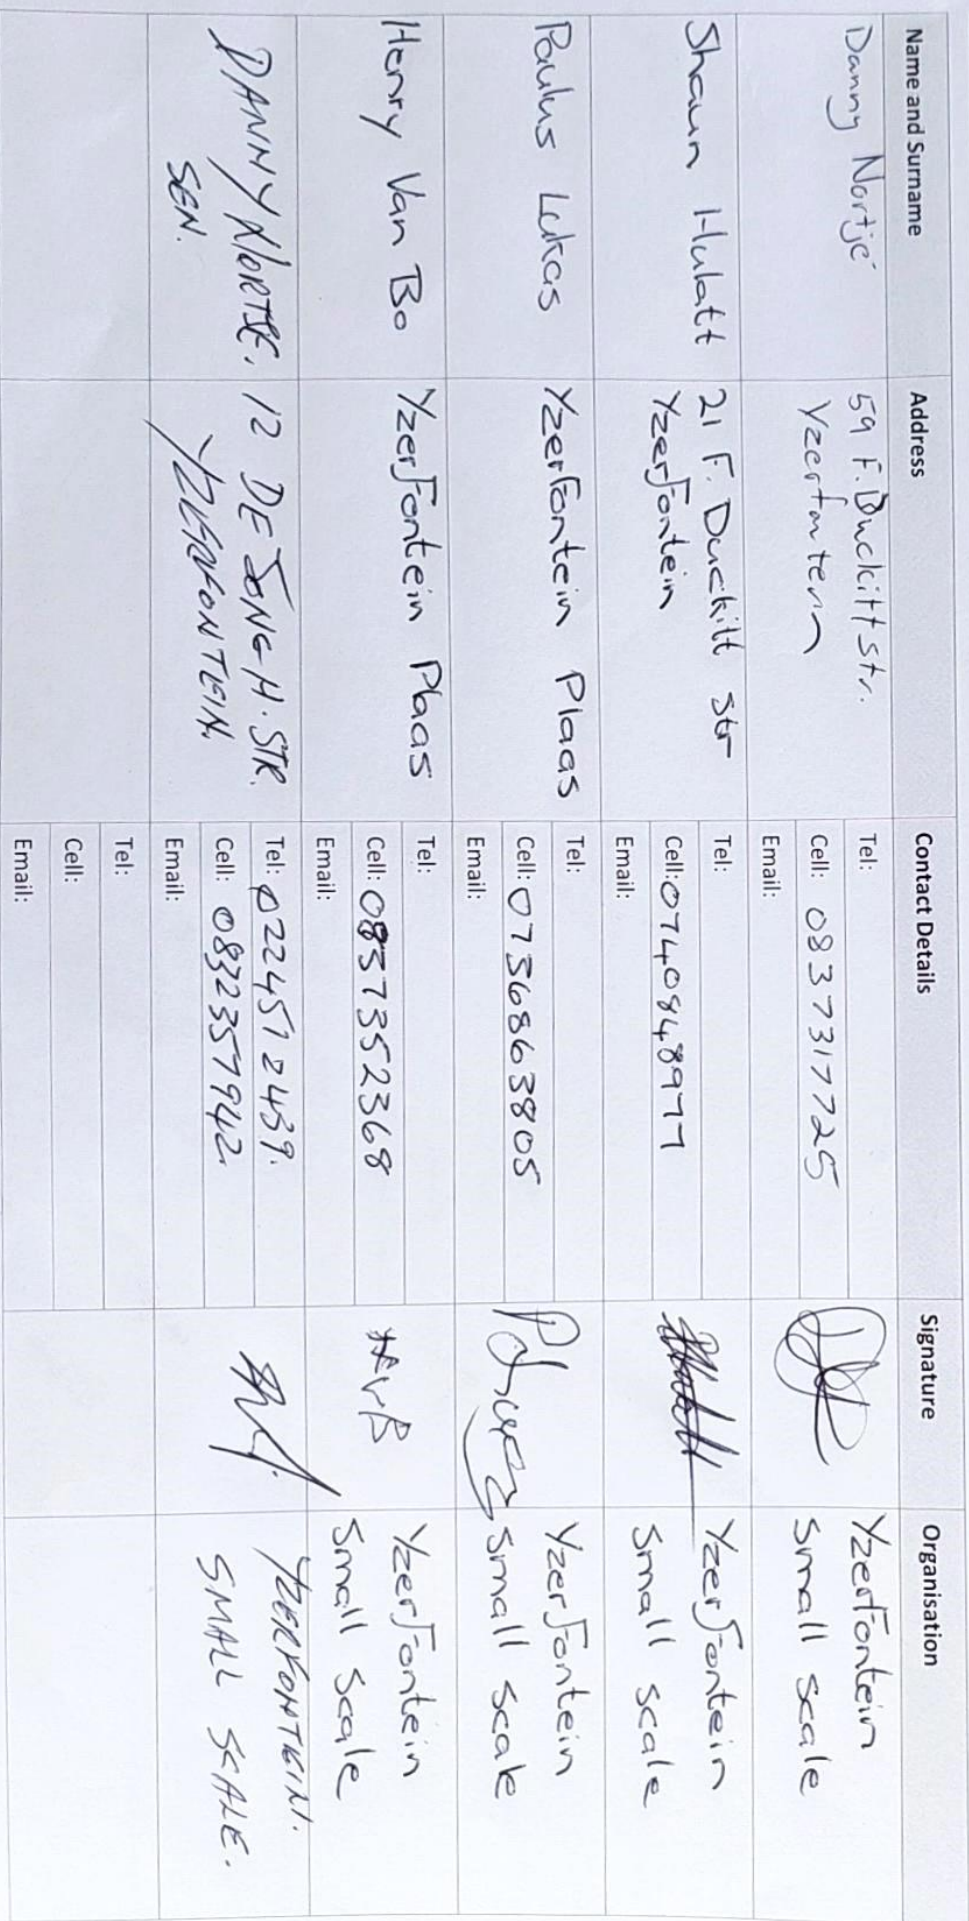 Name and Surname Address Contact Details Signature Organisation
Danny Nortjé
59 F. Duckitt str.
Yzerfontein
Tel:
Cell: 0837317725
Email:
Yzerfontein
Small scale
Shaun Hulatt
21 F. Duckitt str
Yzerfontein
Tel:
Cell: 0740848977
Email:
Yzerfontein
Small scale
Paulus Lukas
Yzerfontein Plaas
Tel:
Cell: 0736863805
Email:
Yzerfontein
Small scale
Henry Van Bo
Yzerfontein Plaas
Tel:
Cell: 0837352368
Email:
HvB
Yzerfontein
Small scale
DANNY NORTJE.
SEN.
12 DE JONGH. STR.
YZERFONTEIN.
Tel: 0224512439.
Cell: 0832357942.
Email:
YZERFONTEIN.
SMALL SCALE.
Tel:
Cell:
Email: